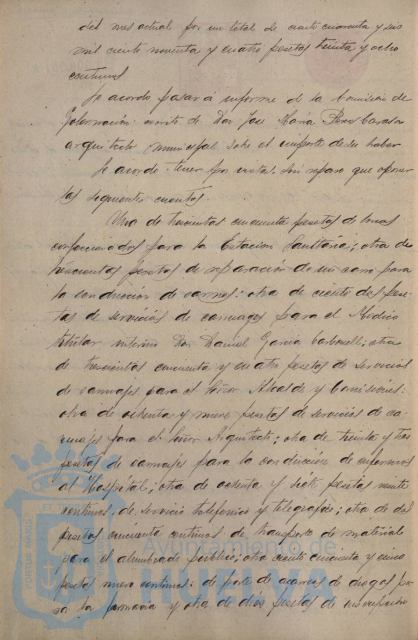 del mes actual por un total de ciento cincuenta y seis
mil ciento noventa y cuatro pesetas treinta y ocho
centimos
Se acordó pasar á informe de la Comisión de
Gobernación: escrito de Don José María Perez Carasa
arquitecto municipal sobre el importe de su haber
Se acordó tener por vistas sin reparo que oponer
las siguientes cuentas.
Una de trescientas cincuenta pesetas de
confeccionados para la Estación Sanitaria; otra de
trescientas pesetas de reparación de un carro para
la conducción de carnes: otra de ciento pese-
tas de servicios de carruages para el Médico
titular interino Don Daniel Garcia Carbonell: otra
de trescientas cincuenta y cuatro pesetas de servicios
de carruajes para el Señor Alcalde y Comisiones:
otra de ochenta y nueve pesetas de servicios de ca-
rruajes para el Señor Arquitecto; otra de treinta y tres
pesetas de carruajes para la conducción de enfermos
al Hospital; otra de ochenta y siete pesetas veinte
centimos de servicio telefonico y telegrafico; otra de diez
pesetas centimos de transporte de material
para el alumbrado público; otra ciento cincuenta y cinco
pesetas nueve centimos: de porte de acarreos de drogas pa-
ra la farmacia y otra de diez pesetas de
Ayuntamiento de
Huelva